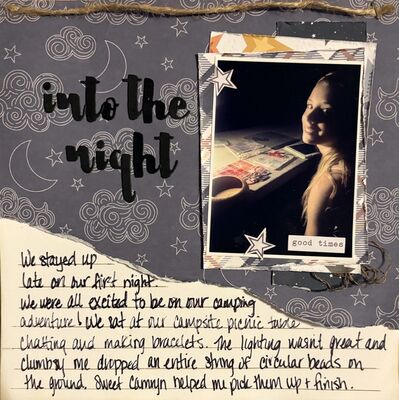 into the
night
good times
We stayed up
late on our first night.
We were all excited to be on our camping
adventure! We sat at our campsite picnic table
chatting and making bracelets. The lighting wasn't great and
clumbsy me dropped an entire string of circular beads on
the ground. Sweet Camryn helped me pick them up + finish.